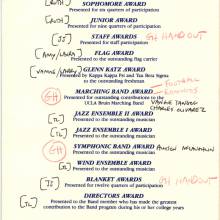 [RUTH] SOPHOMORE AWARD
Presented for six quarters of participation
[RUTH] JUNIOR AWARD
Presented for nine quarters of participation
[JJ] STAFF AWARDS GH HANDOUT
Presented for staff participation
[AMY/LAURA] FLAG AWARD
Presented to the outstanding flag carrier
GLENN KATZ AWARD
Presented by Kappa Kappa Psi and Tau Beta Sigma
to the outstanding freshman
FOOTBALL
GH MARCHING BAND AWARD
Presented for outstanding contributions to the
UCLA Bruin Marching Band
CHARLES ALVAREZ
JAZZ ENSEMBLE II AWARD
Presented to the outstanding musician
JAZZ ENSEMBLE I AWARD
Presented to the outstanding musician
GH SYMPHONIC BAND AWARD
Presented to the outstanding musician
WIND ENSEMBLE AWARD
Presented to the outstanding musician
BLANKET AWARDS GH HANDOUT
Presented for twelve quarters of participation
DIRECTORS AWARD
Presented to the Band member who has made the greatest
contribution to the Band program during his or her college years